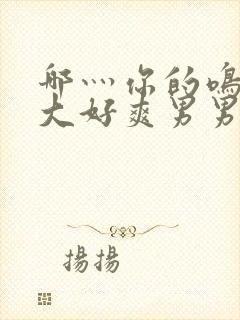 哪灬你的鳴
大好爽男男
揚揚